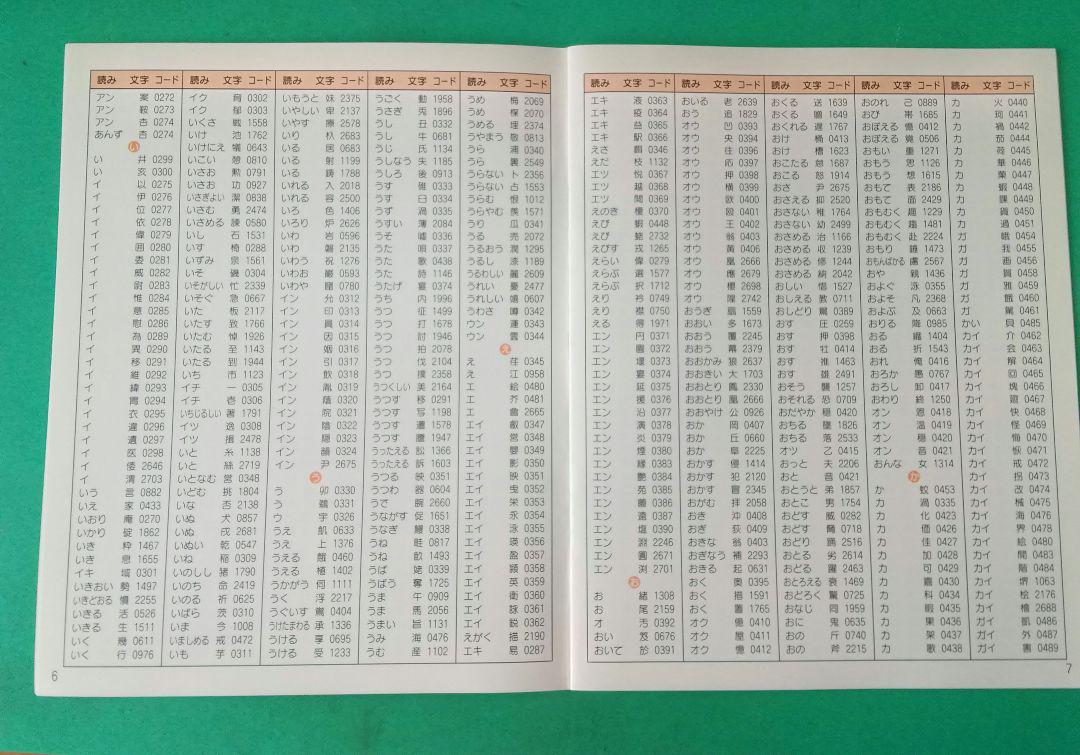 読み 文字 コード
アン 案 0272
アン 鞍 0273
アン 杏 0274
あんず 杏 0274
い
い 井 0299
い 亥 0300
イ 以 0275
イ 伊 0276
イ 位 0277
イ 依 0278
イ 偉 0279
イ 囲 0280
イ 委 0281
イ 威 0282
イ 尉 0283
イ 惟 0284
イ 意 0285
イ 慰 0286
イ 為 0289
イ 異 0290
イ 移 0291
イ 維 0292
イ 緯 0293
イ 胃 0294
イ 衣 0295
イ 違 0296
イ 遺 0297
イ 医 0298
イ 倭 2646
イ 渭 2703
いう 言 0882
いえ 家 0433
いおり 庵 0270
いかり 碇 1862
いき 粋 1467
いき 息 1655
イキ 域 0301
いきおい 勢 1497
いきどおる 憤 2255
いきる 活 0526
いきる 生 1511
いく 幾 0611
いく 行 0976
読み 文字 コード
イク 育 0302
イク 郁 0303
いくさ 戦 1558
いけ 池 1762
いけにえ 犠 0643
いこい 憩 0810
いさお 勲 0791
いさお 功 0927
いさぎよい 潔 0838
いさむ 勇 2474
いさめる 諫 0580
いし 石 1531
いす 椅 0288
いずみ 泉 1561
いそ 磯 0304
いそがしい 忙 2339
いそぐ 急 0667
いた 板 2117
いたす 致 1766
いたむ 悼 1926
いたる 至 1143
いたる 到 1944
いち 市 1123
イチ 一 0305
イチ 壱 0306
いちじるしい 著 1791
イツ 逸 0308
イツ 揖 2478
いと 糸 1138
いと 絲 2719
いとなむ 営 0348
いどむ 挑 1804
いな 否 2138
いぬ 犬 0857
いぬ 戌 2681
いぬい 乾 0547
いね 稲 0309
いのしし 猪 1790
いのち 命 2419
いのる 祈 0625
いばら 茨 0310
いま 今 1008
いましめる 戒 0472
いも 芋 0311
読み 文字 コード
いもうと 妹 2375
いやしい 卑 2137
いやす 療 2578
いり 杁 2683
いる 居 0683
いる 射 1199
いる 鋳 1788
いれる 入 2018
いれる 容 2500
いろ 色 1406
いろり 炉 2626
いわ 岩 0596
いわ 磐 2135
いわう 祝 1276
いわお 巌 0593
いわや 龍 0780
イン 允 0312
イン 印 0313
イン 員 0314
イン 因 0315
イン 姻 0316
イン 引 0317
イン 飲 0318
イン 胤 0319
イン 蔭 0320
イン 院 0321
イン 陰 0322
イン 隠 0323
イン 韻 0324
イン 尹 2675
う
う 卯 0330
う 鵜 0331
ウ 宇 0326
うえ 飢 0633
うえ 上 1376
うえる 餓 0460
うえる 植 1402
うかがう 伺 1111
うく 浮 2217
うぐいす 鴬 0404
うけたまわる 承 1336
うける 享 0695
うける 受 1233
読み 文字 コード
うごく 動 1958
うさぎ 兎 1896
うし 丑 0332
うし 牛 0681
うじ 氏 1134
うしなう 失 1185
うしろ 後 0913
うす 碓 0333
うす 臼 0334
うず 渦 0335
うすい 薄 2084
うそ 嘘 0336
うた 唄 0337
うた 詩 1146
うたげ 宴 0374
うち 内 1996
うつ 征 1499
うつ 打 1678
うつ 討 1946
うつ 拍 2078
うつ 伐 2104
うつ 撲 2358
うつくしい 美 2164
うつす 移 0291
うつす 写 1198
うつす 遷 1578
うつす 謄 1947
うったえる 訟 1366
うったえる 訴 1603
うつる 映 0351
うつわ 器 0604
うで 腕 2660
うながす 促 1651
うなぎ 鰻 0338
うね 畦 0817
うね 畝 1493
うば 姥 0339
うばう 奪 1725
うま 午 0909
うま 馬 2056
うまい 旨 1131
うみ 海 0476
うむ 産 1102
読み 文字 コード
うめ 梅 2069
うめ 楳 2070
うめる 埋 2374
うやまう 敬 0813
うら 浦 0340
うら 裏 2549
うらない 卜 2356
うらない 占 1553
うらむ 恨 1012
うらやむ 羨 1571
うり 瓜 0341
うる 売 2072
うるおう 潤 1295
うるし 漆 1189
うるわしい 麗 2609
うれい 憂 2477
うれしい 嬉 0607
うわさ 噂 0342
ウン 運 0343
ウン 雲 0344
え
え 荏 0345
え 江 0958
エ 絵 0480
エ 芥 0481
エ 會 2665
エイ 叡 0347
エイ 営 0348
エイ 嬰 0349
エイ 影 0350
エイ 映 0351
エイ 曳 0352
エイ 栄 0353
エイ 永 0354
エイ 泳 0355
エイ 瑛 0356
エイ 盈 0357
エイ 穎 0358
エイ 英 0359
エイ 衛 0360
エイ 詠 0361
エイ 鋭 0362
えがく 描 2190
エキ 易 0287
6
読み 文字 コード
エキ 液 0363
エキ 疫 0364
エキ 益 0365
エキ 駅 0366
えさ 餌 0346
えだ 枝 1132
エツ 悦 0367
エツ 越 0368
エツ 閲 0369
えのき 榎 0370
えび 蝦 0448
えび 蛯 2732
えびす 戎 1265
えらい 偉 0279
えらぶ 選 1577
えらぶ 択 1712
えり 衿 0749
えり 襟 0750
える 得 1971
エン 円 0371
エン 園 0372
エン 堰 0373
エン 宴 0374
エン 延 0375
エン 援 0376
エン 沿 0377
エン 演 0378
エン 炎 0379
エン 煙 0380
エン 縁 0383
エン 艶 0384
エン 苑 0385
エン 薗 0386
エン 遠 0387
エン 塩 0390
エン 淵 2246
エン 圓 2671
エン 渕 2701
お
お 緒 1308
お 尾 2159
オ 汚 0392
おい 笈 0676
おいて 於 0391
読み 文字 コード
おいる 老 2639
おう 追 1829
オウ 凹 0393
オウ 央 0394
オウ 往 0396
オウ 応 0397
オウ 押 0398
オウ 横 0399
オウ 欧 0400
オウ 殴 0401
オウ 王 0402
オウ 翁 0403
オウ 黄 0406
オウ 凰 2666
オウ 應 2679
オウ 櫻 2698
オウ 隍 2742
おうぎ 扇 1559
おおい 多 1673
おおう 覆 2245
おおう 幕 2379
おおかみ 狼 2637
おおきい 大 1703
おおとり 鳳 2330
おおとり 凰 2666
おおやけ 公 0926
おか 岡 0407
おか 丘 0660
おか 阜 2225
おかす 侵 1414
おかす 犯 2120
おかす 冒 2345
おがむ 拝 2058
おき 沖 0408
おぎ 荻 0409
おきな 翁 0403
おぎなう 補 2293
おきる 起 0631
おく 奥 0395
おく 措 1591
おく 置 1765
オク 億 0410
オク 屋 0411
オク 憶 0412
読み 文字 コード
おくる 送 1639
おくる 贈 1649
おくれる 遅 1767
おけ 桶 0413
おけ 槽 1623
おこたる 怠 1687
おこる 怒 1914
おさ 尹 2675
おさえる 抑 2520
おさない 稚 1764
おさない 幼 2499
おさめる 治 1166
おさめる 収 1239
おさめる 修 1244
おさめる 納 2042
おしい 惜 1527
おしえる 教 0711
おしどり 鴛 0389
おす 圧 0259
おす 押 0398
おす 牡 0414
おす 推 1463
おす 雄 2491
おそう 襲 1257
おそれる 恐 0709
おだやか 穏 0420
おちる 墜 1826
おちる 落 2533
オツ 乙 0415
おっと 夫 2206
おと 音 0421
おとうと 弟 1857
おとこ 男 1754
おどす 威 0282
おどす 脅 0718
おどり 踊 2516
おとる 劣 2614
おどる 躍 2463
おとろえる 衰 1469
おどろく 驚 0725
おなじ 同 1959
おに 鬼 0635
おの 斤 0740
おの 斧 2215
読み 文字 コード
おのれ 己 0889
おび 帯 1685
おぼえる 憶 0412
おぼえる 覚 0506
おもい 重 1271
おもう 思 1126
おもう 想 1615
おもて 表 2186
おもて 面 2429
おもむく 趣 1229
おもむく 趨 1481
おもむく 赴 2224
おもり 錘 1473
おもんばかる 慮 2567
おや 親 1436
およぐ 泳 0355
およそ 凡 2368
およぶ 及 0663
おりる 降 0985
おる 織 1404
おる 折 1543
おれ 俺 0416
おろか 愚 0767
おろし 卸 0417
おわり 終 1250
オン 恩 0418
オン 温 0419
オン 穏 0420
オン 音 0421
おんな 女 1314
か
か 蚊 0453
カ 渦 0335
カ 化 0423
カ 価 0426
カ 佳 0427
カ 加 0428
カ 可 0429
カ 嘉 0430
カ 科 0434
カ 暇 0435
カ 果 0436
カ 架 0437
カ 歌 0438
読み 文字 コード
カ 火 0440
カ 珂 0441
カ 禍 0442
カ 茄 0444
カ 荷 0445
カ 華 0446
カ 菓 0447
カ 蝦 0448
カ 課 0449
カ 貨 0450
カ 過 0451
ガ 蛾 0454
ガ 我 0455
ガ 画 0456
ガ 賀 0458
ガ 雅 0459
ガ 餓 0460
ガ 駕 0461
かい 貝 0485
カイ 介 0462
カイ 会 0463
カイ 解 0464
カイ 回 0465
カイ 塊 0466
カイ 廻 0467
カイ 快 0468
カイ 怪 0469
カイ 悔 0470
カイ 恢 0471
カイ 戒 0472
カイ 拐 0473
カイ 改 0474
カイ 械 0475
カイ 海 0476
カイ 界 0478
カイ 絵 0480
カイ 開 0483
カイ 階 0484
カイ 堺 1063
カイ 桧 2176
カイ 檜 2688
ガイ 凱 0486
ガイ 外 0487
ガイ 害 0489
7